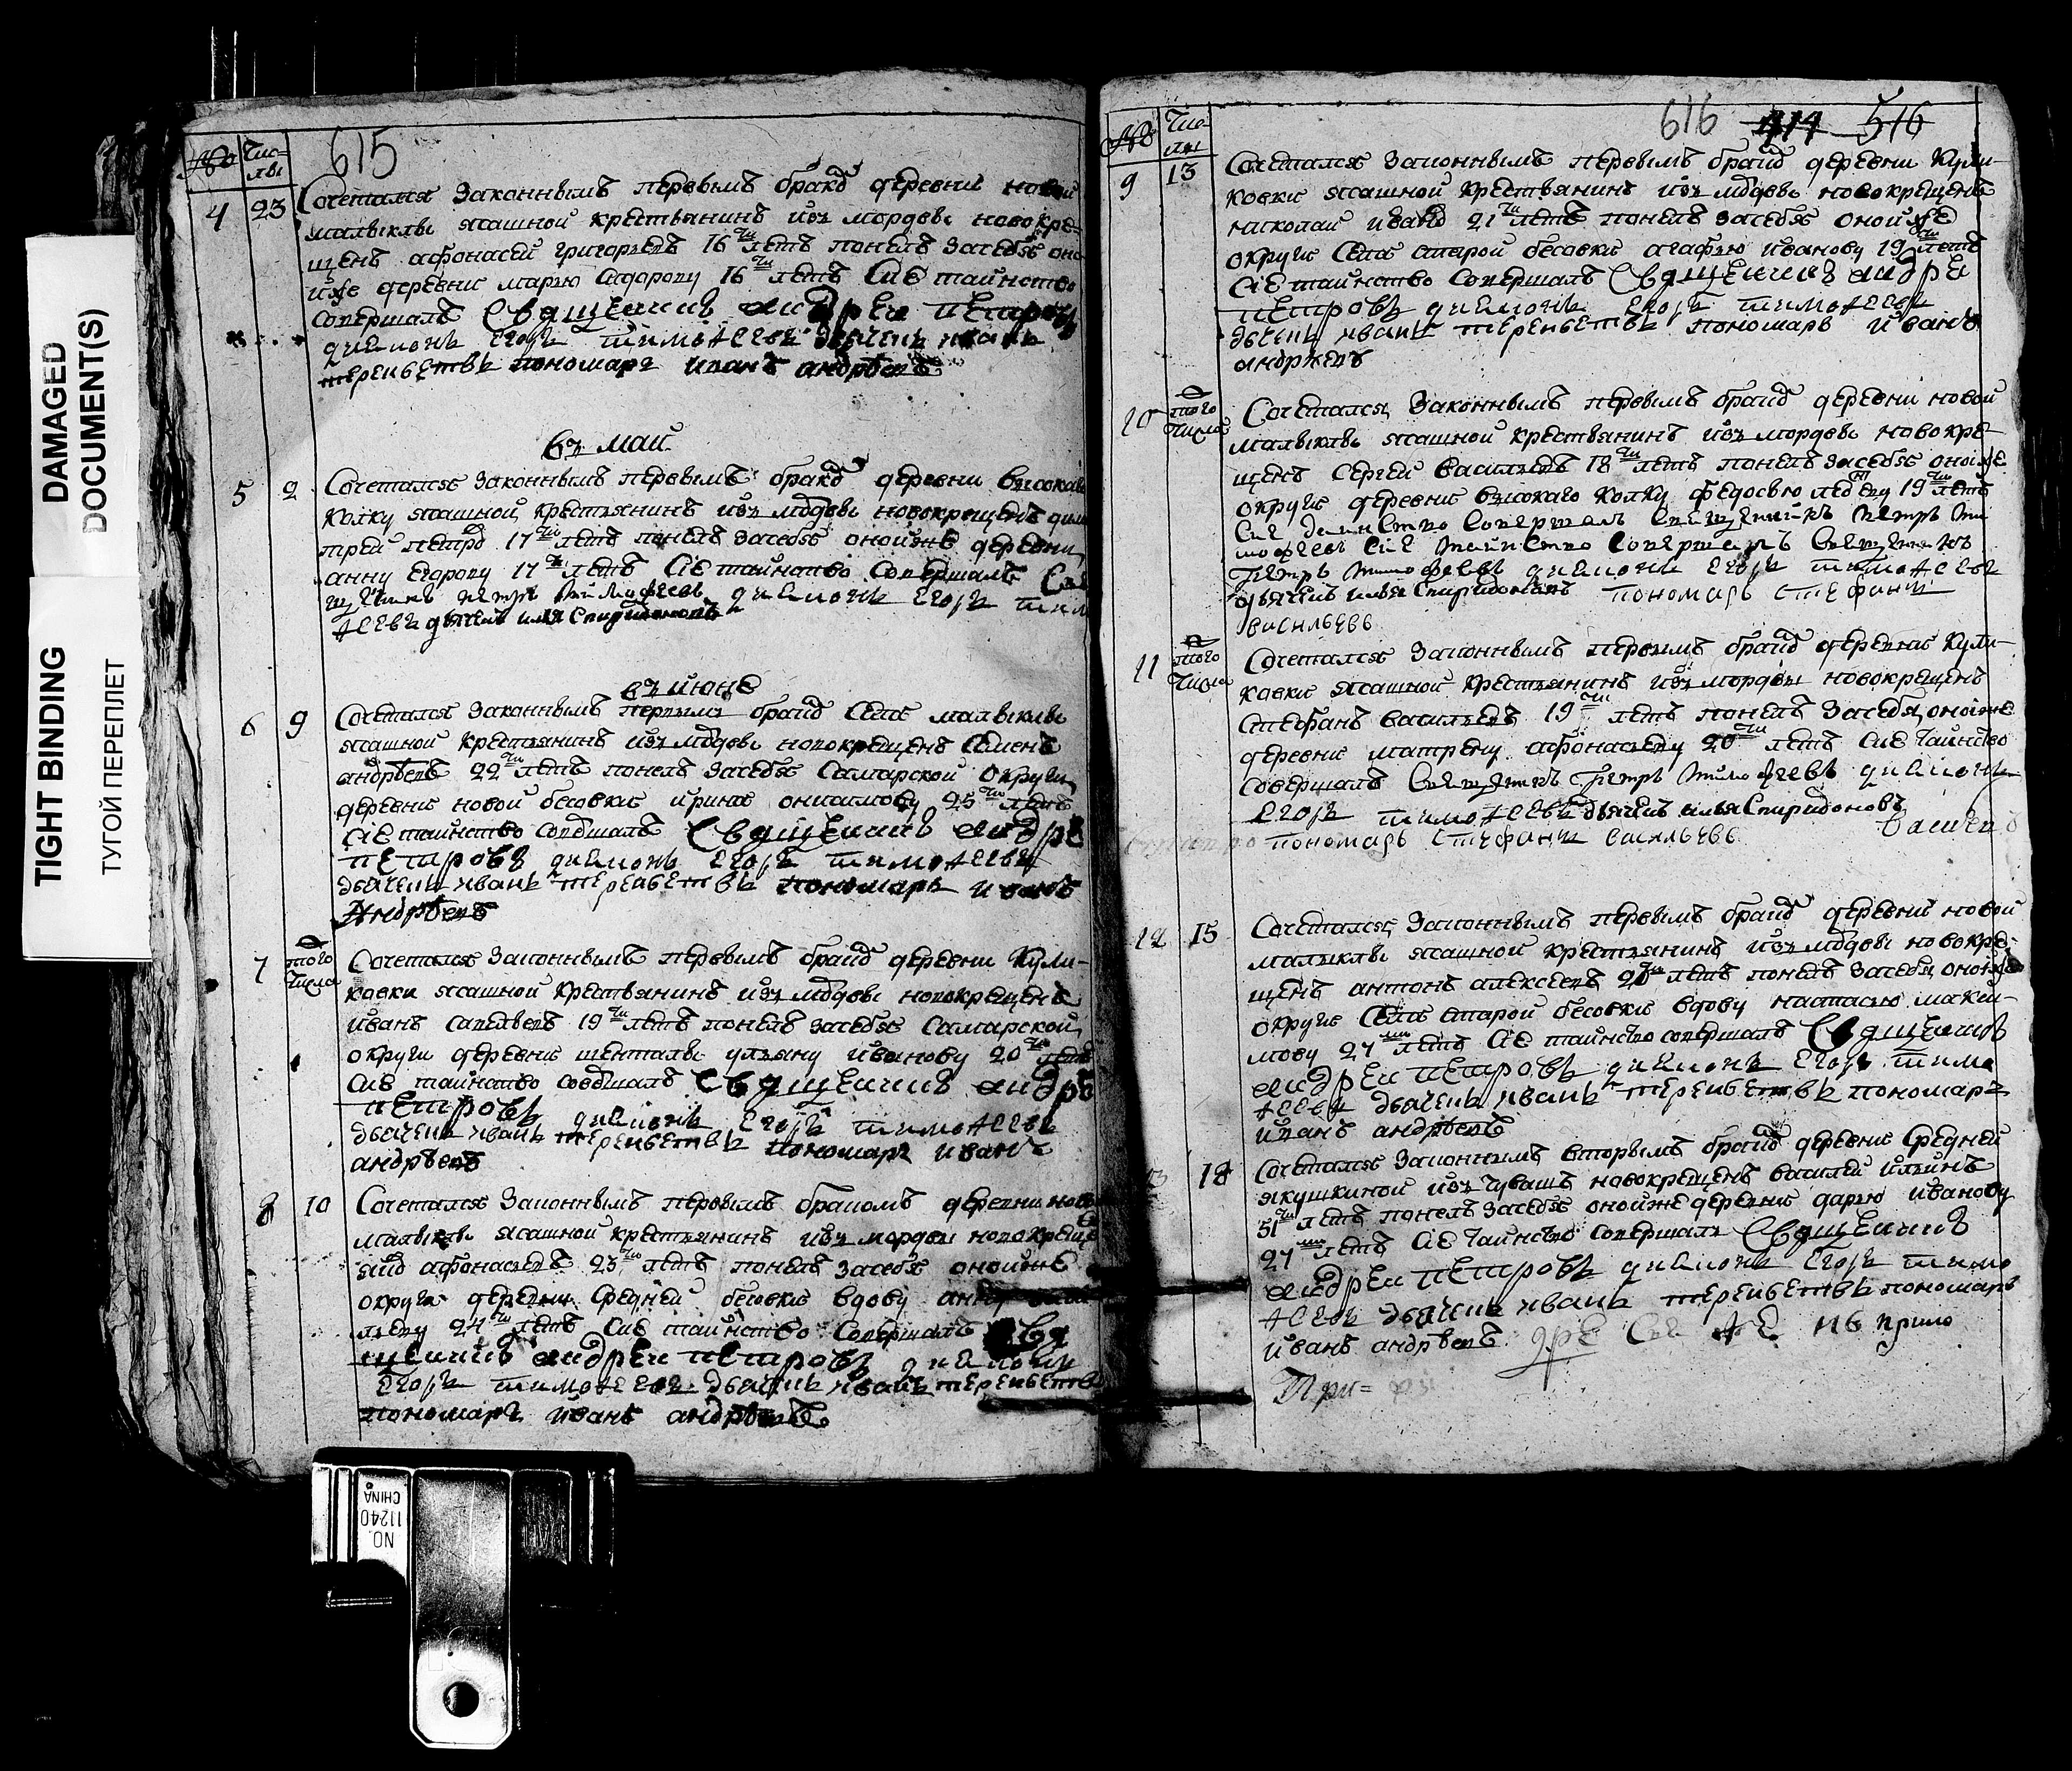 DAMAGED
DOCUMENT(S)
TIGHT BINDING
ТУГОЙ ПЕРЕПЛЕТ
615
№ Чис-
лы
4 23 Сочетался законнымъ первымъ бракомъ деревни новой
малыклы ясашной крестьянинъ изъ мордвы новокре-
щенъ афонасей григорьевъ 16ти летъ понелъ засебя оной
же деревни марью сидорову 16ти летъ Сие таинство
совершалъ Священникъ андреи петровъ
диаконъ егоръ тимоѳеевъ дьячекъ иванъ
терентьевъ пономарь иванъ андреевъ
въ маи
5 2 Сочетался законнымъ первымъ бракомъ деревни высокаго
колку ясашной крестьянинъ изъ мордвы новокрещенъ дми
трей петровъ 17ти летъ понелъ засебя оной же деревни
анну егорову 17ти летъ Сие таинство совершалъ Свя
щенникъ петръ тимофеевъ диаконъ егоръ тим
ѳеевъ дьячекъ илья спиридоновъ
въ июне
6 9 Сочетался законнымъ первымъ бракомъ Села малыклы
ясашной крестьянинъ изъ мордвы новокрещенъ Семенъ
андреевъ 22ти летъ понелъ засебя Самарской округи
деревни новой бесовки ирину 25ти летъ
Сие таинство совершалъ Священникъ андре
петровъ диаконъ егоръ тимоѳеевъ
дьячекъ иванъ терентьевъ пономарь иванъ
Андреевъ
7 того числа Сочетался законнымъ первымъ бракомъ деревни Кули-
ковки ясашной крестьянинъ изъ мордвы новокрещенъ
иванъ савельевъ 19ти летъ понелъ засебя Самарской
округи деревни шенталы ульяну иванову 20ти летъ
Сие таинство совершалъ Священникъ андре
петровъ диаконъ егоръ тимоѳеевъ
дьячекъ иванъ терентьевъ пономарь иванъ
андреевъ
8 10 Сочетался законнымъ первымъ бракомъ деревни новой
малыклы ясашной крестьянинъ изъ мордвы новокреще
афонасьевъ 23ти летъ понелъ засебя оной же
округи деревни Средней бесовки вдову
27ти летъ Сие таинство совершалъ Свя
щенникъ андреи петровъ диаконъ
егоръ тимоѳеевъ дьячекъ иванъ терентьевъ
пономарь иванъ андреевъ
616 516
№ Чис-
лы
9 13 Сочетался законнымъ первымъ бракомъ деревни Кули-
ковки ясашной крестьянинъ изъ мордвы новокрещенъ
николай ивановъ 21ти летъ понелъ засебя оной же
округи Села старой бесовки агафью иванову 19ти летъ
Сие таинство совершалъ Священникъ андре
петровъ диаконъ егоръ тимоѳеевъ
дьячекъ иванъ терентьевъ пономарь иванъ
андреевъ
10 того числа Сочетался законнымъ первымъ бракомъ деревни новой
малыклы ясашной крестьянинъ изъ мордвы новокре-
щенъ Сергей васильевъ 18ти летъ понелъ засебя оной же
округи деревни высокаго колку федосью 19ти летъ
Сие совершалъ священникъ петръ ти
мофеевъ сие таинство совершалъ священникъ
петръ тимофеевъ диаконъ егоръ тимоѳеевъ
дьячекъ илья спиридоновъ пономарь стефанъ
васильевъ
11 того числа Сочетался законнымъ первымъ бракомъ деревни Кули-
ковки ясашной крестьянинъ изъ мордвы новокрещенъ
стефанъ васильевъ 19ти летъ понелъ засебя оной же
деревни матрену афонасьеву 20ти летъ Сие таинство
совершалъ священникъ петръ тимофеевъ диаконъ
егоръ тимоѳеевъ дьячекъ илья спиридоновъ
пономарь стефанъ васильевъ
12 15 Сочетался законнымъ первымъ бракомъ деревни новой
малыклы ясашной крестьянинъ изъ мордвы новокре-
щенъ антонъ алексеевъ летъ понелъ засебя оной же
округи Села старой бесовки вдову настасью макси-
мову 27ми летъ Сие таинство совершалъ Священникъ
андреи петровъ диаконъ егоръ тимо
ѳеевъ дьячекъ иванъ терентьевъ пономарь
иванъ андреевъ
13 18 Сочетался законнымъ вторымъ бракомъ деревни Средней
якушкиной изъ чувашъ новокрещенъ василей ильинъ
51ти летъ понелъ засебя оной же деревни дарью иванову
27ми летъ Сие таинство совершалъ Священникъ
андреи петровъ диаконъ егоръ тимо
ѳеевъ дьячекъ иванъ терентьевъ пономарь
иванъ андреевъ
При=
NO.
11240
CHINA